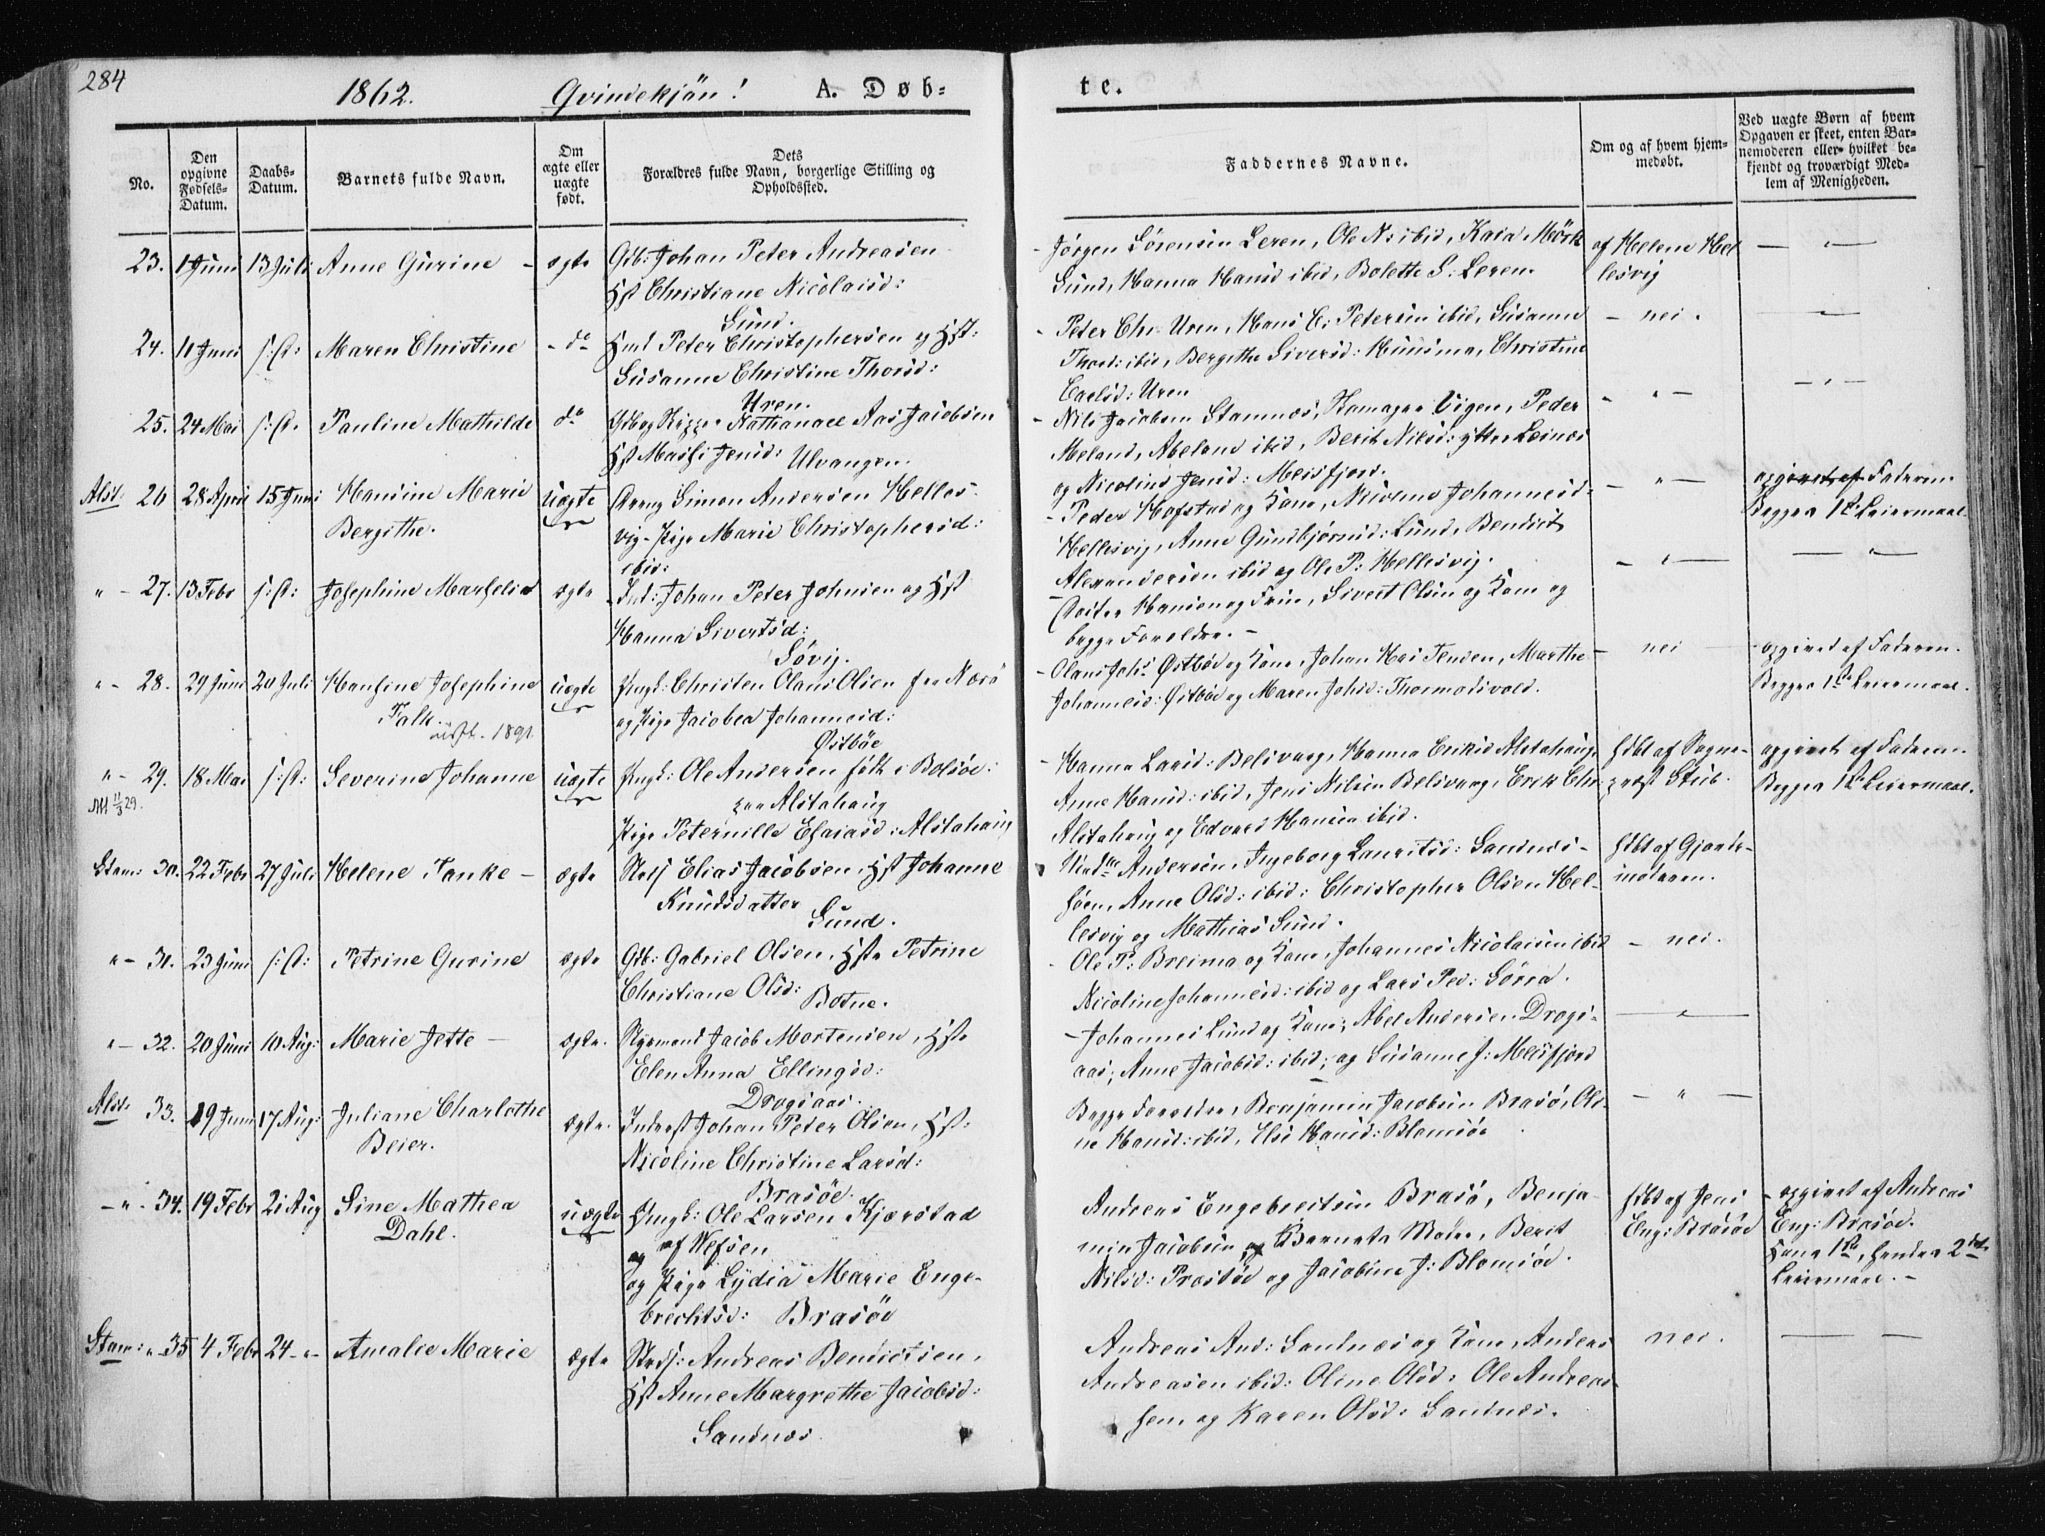 284
1862. Qvindekjön! A. Døb-
te.
No.
Den opgivne Fødsels-Datum.
Daabs-Datum.
Barnets fulde Navn.
Om ægte eller uægte født.
Dets Forældres fulde Navn, borgerlige Stilling og Opholdssted.
Faddernes Navne.
Om og af hvem hjem-
medøbt.
Ved uægte Børn af hvem
Opgaven er skeet, enten Bar-
nemoderen eller hvilket be-
kjendt og troværdigt Med-
lem af Menigheden.
23. 1 Juni 13 Juli Anne Gurine - ægte Gdb: Johan Peter Andreasen
Hst Christiane Nicolaisd:
Sund.
Jørgen Sørensen Leren, Ole N: ibid, Kaia Mörk
Sund, Hanna Hansd ibid, Bolette S: Leren.
af Helene Hel
lesvig
24. 11 Juni s: D: Maren Christine - do Hmd Peter Christophersen og Hst:
Susanne Christine Thorsd:
Uren.
Peter Chr: Uren, Hans C: Petersen ibid, Susanne
Thorsd: ibid, Bergithe Siversd: Huusmo, Christine
Carlsd: Uren
- nei.
25. 24 Mai s: D: Pauline Mathilde do Gdbrg Nathanael Aas Jacobsen
Hst Jensd: Ulvangen.
Nils Jacobsen Stamnæs, Vigen, Peder
Meland, Abelone ibid, Berit Nilsd: ytre Leinæs
og Nicoline Jensd: Meisfjord.
Alst: 26 28 April 15 Juni Hansine Marie
Bergithe.
uægte
Simon Andersen Helles-
vig - Pige Marie Christophersd:
ibid:
- Peder Hofstad og Kone, Nicoline Johannesd:
Hellesvig, Anne Gundbjørnsd: Lund, Bendict
Alexandersen ibid og Ole P: Hellesvig.
opgivet af Faderen.
Begges 1ste Leiermaal.
" - 27. 13 Febr s: D: Josephine Marselia ægte Ind: Johan Peter Johnsen og Hst
Hanna Sivertsd:
Søvig.
Hansen og Frue, Sivert Olsen og Kone og
begge Forældre. -
" - 28. 29 Juni 20 Juli Hansine Josephine
Falk.
1891
uægte
Ungk: Christen Olaus Olsen fra Næsø
og Pige Jacobea Johannesd:
Østbøe
- Olaus Johs Østbøe og Kone, Johan Jensen, Marthe
Johannesd: Østbøe og Maren Johsd: Thormodsvold.
nei
opgivet af Faderen.
Begges 1ste Leiermaal.
" - 29. 18 Mai s: D: Severine Johanne uægte Ungk: Ole Andersen født i Bolsøe:
paa Alstahaug
Pige Peternille Esaiasd: Alstahaug
- Hanna Larsd: Belsvaag, Hanna Eriksd Alstahaug
Anne Hansd: ibid, Jens Nilsen Belsvaag, Erik Chr:
Alstahaug og Edvard Hansen ibid.
hdbt af Sogne-
præst Stub.
opgivet af Faderen.
Begges 1ste Leiermaal.
Stam: 30. 22 Febr 27 Juli Helene Tanke - ægte Elias Jacobsen, Hst Johanne
Knudsdatter
Sund.
Andersen, Ingeborg Lauritsd: Sandnæs-
søen, Anne Olsd: ibid: Christopher Olsen Hel-
lesvig og Mathias Sund.
hdbt af Gjorde-
moderen.
" - 31. 23 Juni s: D: Petrine Gurine ægte Gdb: Gabriel Olsen, Hst Petrine
Christiane Olsd: Botne.
Ole P: Breimo og Kone, Johannes Nicolaisen ibid
Nicoline Johannesd: ibid og Lars Ped: Sørra.
- nei.
" - 32. 20 Juni 10 Aug: Marie Jette - ægte. Styrmand Jacob Mortensen, Hst
Elen Anna Ellingsd:
Dragsaas.
- Johannes Lund og Kone, Abel Andersen Drags-
aas; Anne Jacobsd: ibid; og Susanne J: Meisfjord
Alst: 33. 19 Juni 17 Aug: Juliane Charlothe
Beier.
ægte. Inderst Johan Peter Olsen, Hst:
Nicoline Christine Larsd:
Brasøe.
Begge Forældre, Benjamin Jacobsen Brasø, Oli-
ne Hansd: ibid, Else Hansd: Blomsøe
- " - 34. 19 Febr 21 Aug Sine Mathea
Dahl.
uægte Ungk: Ole Larsen Kjærstad
af Vefsen
og Pige Lydia Marie Enge-
brechtsd: Brasöe
Andreas Engebretsen Brasö, Benja-
min Jacobsen og Barnets Moder, Berit
Nilsd: Prestöe og Jacobine J: Blomsöe.
hdbt af Jens
Eng: Brasöe
opgivet af Andreas
Eng: Brasöe.
Hans 1ste, hendes 2det
Leiermaal. -
Stam: " - 35 4 Febr 24 - " - Amalie Marie ægte Andreas Bendictsen,
Hst Anne Margrethe Jacobsd:
Sandnæs
Andreas And: Sandnæs og Kone, Anders
Andreasen ibid: Oline Olsd: Ole Andreas-
sen og Karen Olsd: Sandnæs.
nei.